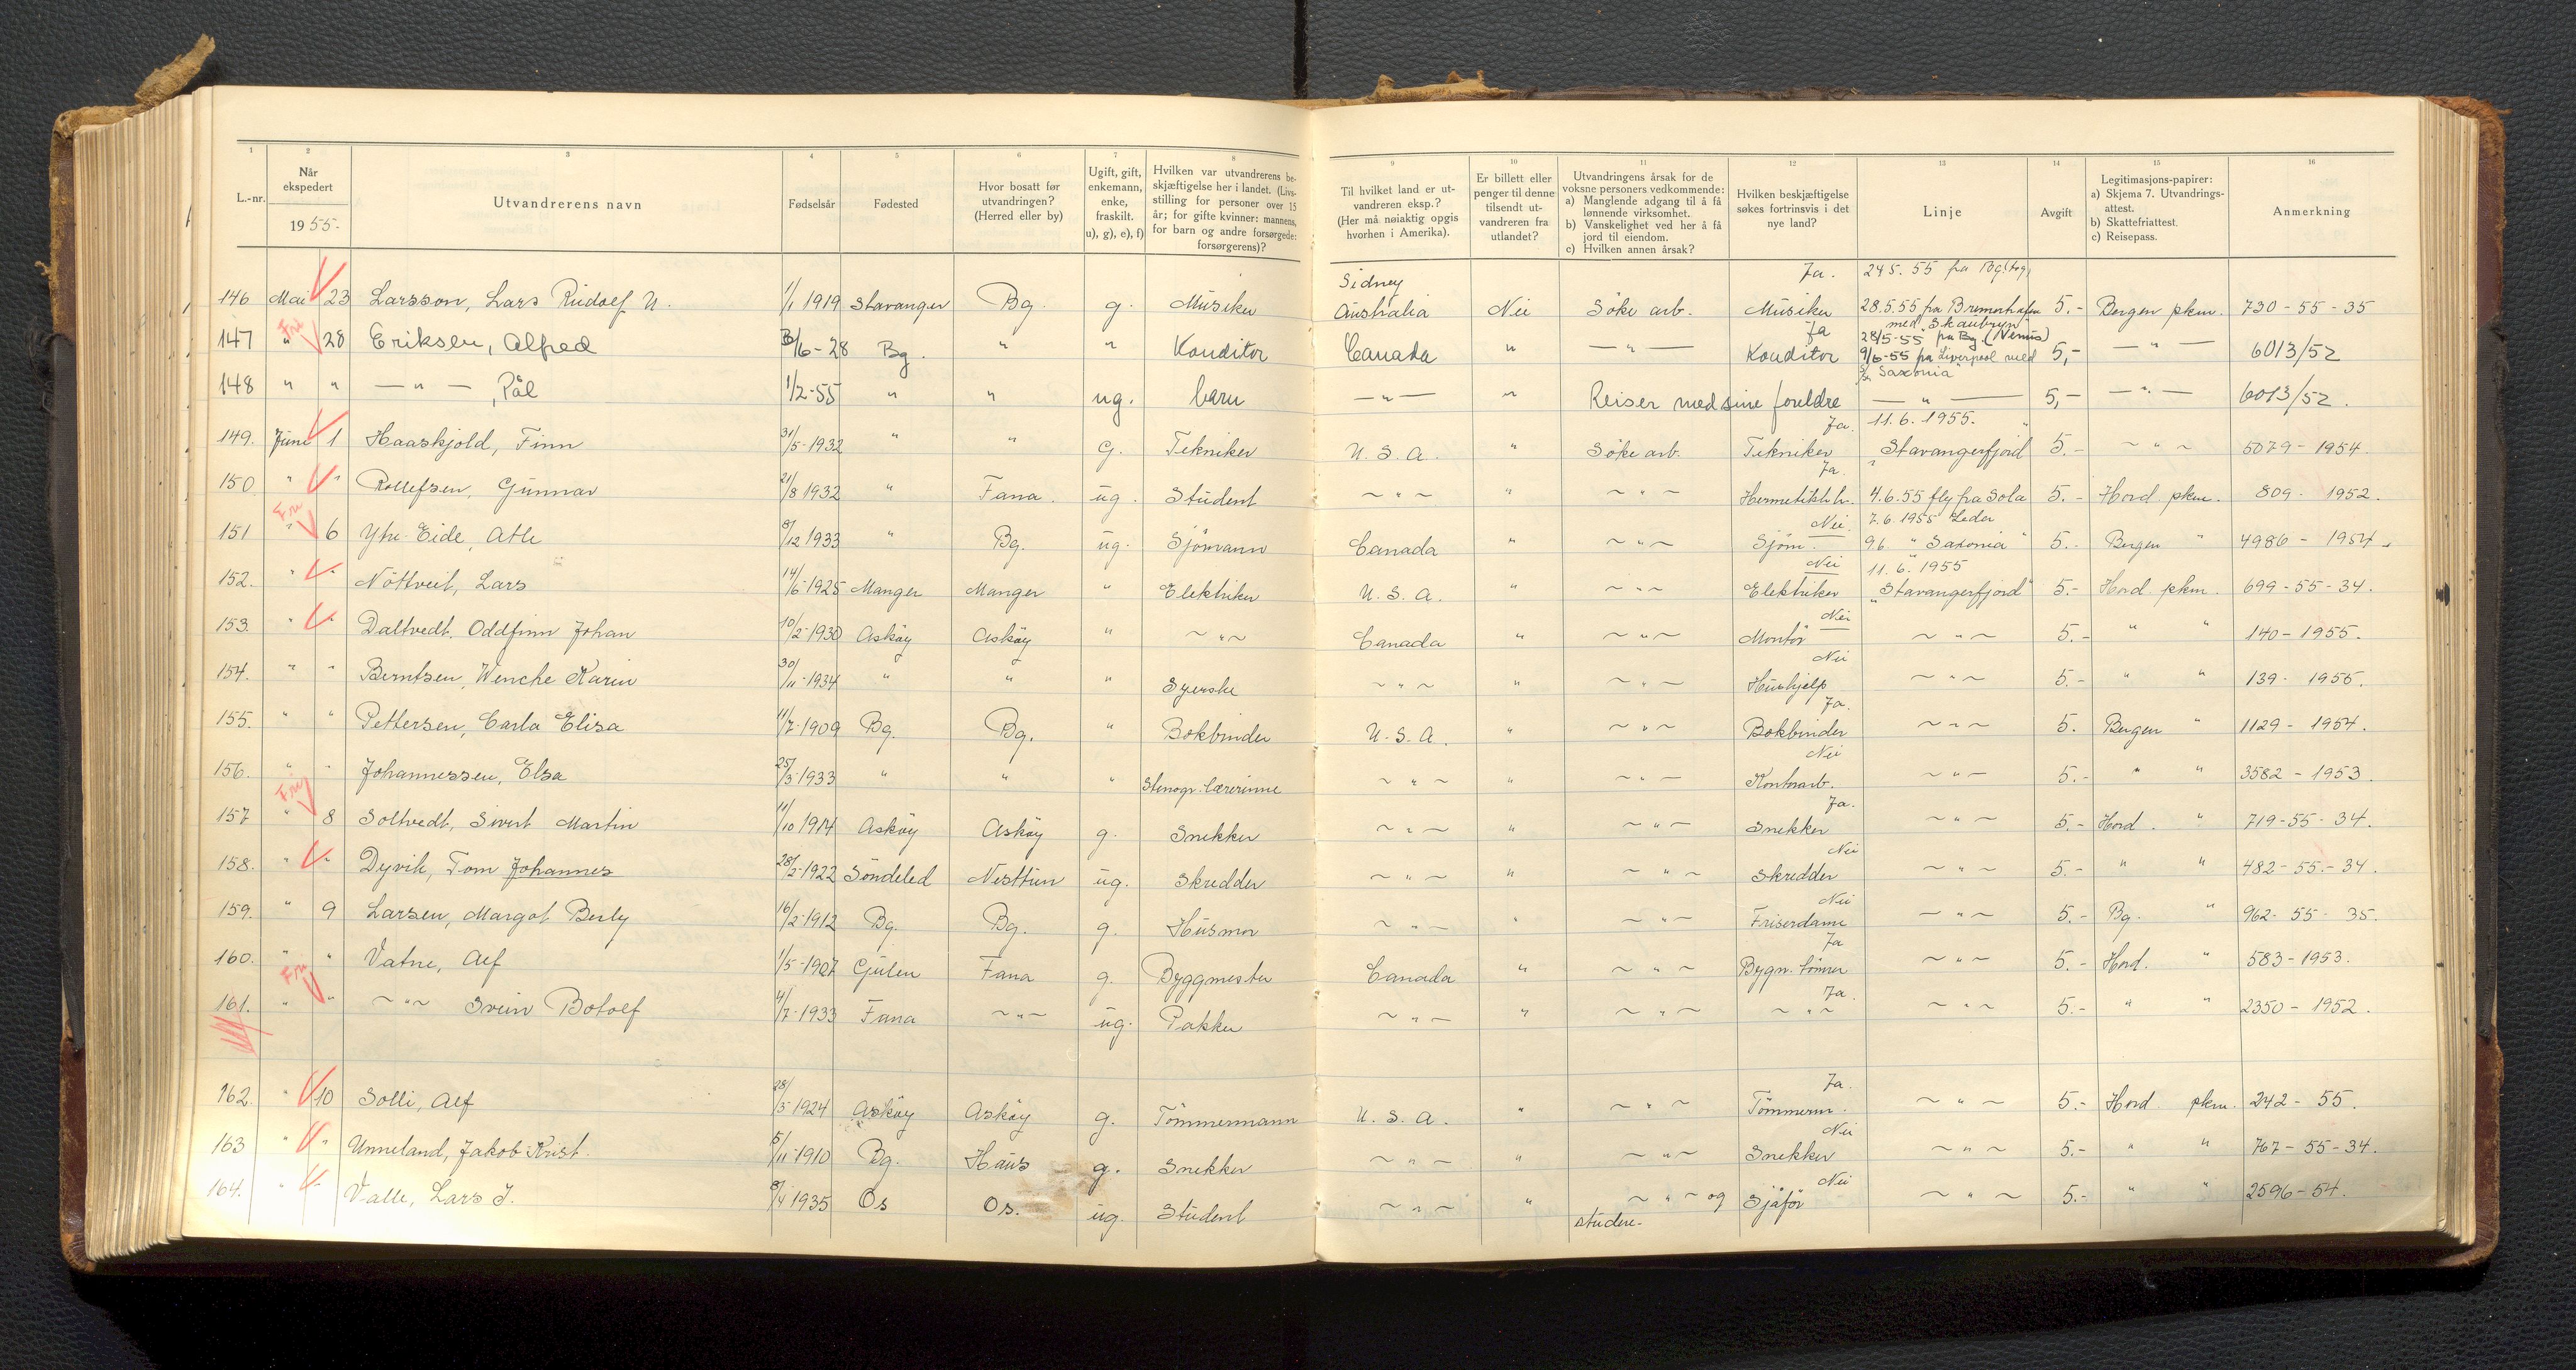 1 2 3 4 5 6 7 8 9 10 11 12 13 14 15 16
L.-nr. | Når ekspedert 1955- | Utvandrerens navn | Fødselsår | Fødested | Hvor bosatt før utvandringen? (Herred eller by) | Ugift, gift, enkemann, enke, fraskilt. u), g), e), f) | Hvilken var utvandrerens beskjæftigelse her i landet. (Livsstilling for personer over 15 år; for gifte kvinner: mannens, for barn og andre forsørgede: forsørgerens)? | Til hvilket land er utvandreren eksp.? (Her må nøiaktig opgis hvorhen i Amerika). | Er billett eller penger til denne tilsendt utvandreren fra utlandet? | Utvandringens årsak for de voksne personers vedkommende: a) Manglende adgang til å få lønnende virksomhet. b) Vanskelighet ved her å få jord til eiendom. c) Hvilken annen årsak? | Hvilken beskjæftigelse søkes fortrinsvis i det nye land? | Linje | Avgift | Legitimasjons-papirer: a) Skjema 7. Utvandringsattest. b) Skattefriattest. c) Reisepass. | Anmerkning
Sidney Ja. 24 5. 55 fra Bg.
146 Mai 23 Larsson, Lars Rudolf N. 1/1 1919 Stavanger Bg. g. Musiker Australia Nei Søke arb. Musiker 28.5.55 fra Bremerhafen 5.- Bergen pkm. 730-55-35
med "Skaubryn"
Fri Ja 28/5-55 fra Bg. (Venus)
147 " 28 Eriksen, Alfred /6-28 Bg. " " Konditor Canada " — " — Konditor 9/6-55 fra Liverpool med 5,- — " — 6013/52
S/S "Saxonia"
148 " " — " —, Pål 1/2-55 " " ug. barn — " — " Reiser med sine foreldre — " — 5,- — " — 6013/52.
Ja. 11.6.1955.
149. Juni 1 Haaskjold, Finn 31/5-1932 " " G. Tekniker U.S.A. " Søke arb. Tekniker "Stavangerfjord" 5.- ~ " ~ 5079-1954.
Ja.
150. " " Rollefsen, Gunnar 21/8 1932 " Fana. ug. Student ~ " ~ " ~ " ~ Hermetikkh. 4.6.55 fly fra Sola 5.- Hord pkm. 809- 1952.
Fri Nei. 7.6.1955 Leda
151 " 6 Ytre-Eide, Atle 8/12 1933 " Bg. ug. Sjømann Canada " ~ " ~ Sjøm. 9.6. "Saxonia" 5.- Bergen " 4986 - 1954.
Nei 11.6.1955
152. " " Nöttveit, Lars 14/6-1925 Manger Manger " Elektriker U.S.A. " ~ " ~ Elektriker "Stavangerfjord" 5.- Hord. pkm. 699-55-34.
Nei
153. " " Daltvedt, Oddfinn Johan 10/2-1930 Askøy Askøy " ~ " ~ Canada " ~ " ~ Montör ~ " ~ 5.- " " 140-1955.
Nei
154. " " Berntsen, Wenche Karin 30/11-1934 " " " Syerske ~ " ~ " ~ " ~ Hushjelp ~ " ~ 5.- " " 139- 1955.
Ja.
155. " " Pettersen, Carla Elisa 11/7-1909 Bg. Bg. " Bokbinder U.S.A. " ~ " ~ Bokbinder ~ " ~ 5. Bergen " 1129-1954.
Nei
156. " " Johannessen, Elsa 25/3-1933 " " " Stenogr. lærerinne ~ " ~ " ~ " ~ Kontorarb. ~ " ~ 5.- " " 3582-1953.
Fri Ja.
157 " 8 Soltvedt, Sivert Martin 11/10 1914 Askøy Askøy g. Snekker ~ " ~ " ~ " ~ Snekker ~ " ~ 5.- Hord. " 719-55-34.
Nei
158. " " Dyvik, Tom Johannes 28/2-1922 Söndeled Nesttun ug. Skredder ~ " ~ " ~ " ~ Skredder ~ " ~ 5.- " " 482-55-34.
Nei
159. " 9 Larsen, Margot Berly 16/2-1912 Bg. Bg. g. Husmor ~ " ~ " ~ " ~ Friserdame ~ " ~ 5.- Bg. " 962-55-35.
Ja
160. " " Vatne, Alf 1/5-1907 Gulen Fana g. Byggmester Canada " ~ " ~ Bygn. tömrer ~ " ~ 5.- Hord. " 583-1953.
Fri Ja.
161. " " ~ " ~ Svein Botolf 4/7-1933 Fana ~ " ~ ug. Pakker ~ " ~ " ~ " ~ ~ " ~ ~ " ~ 5.- " " 2350-1952.
Ja.
162. " 10 Solli, Alf 28/5 1924 Askøy Askøy g. Tömmermann U.S.A. " ~ " ~ Tömmerm. ~ " ~ 5.- Hord pkm. 242-55.
Nei
163 " " Unneland, Jakob Krist. 5/11-1910 Bg. Haus g. Snekker ~ " ~ " ~ " ~ Snekker ~ " ~ 5.- " " 767-55-34.
Nei
164. " " Valle, Lars J. 8/4 1935 Os Os. ug. Student ~ " ~ " ~ " ~ og Sjåfør ~ " ~ 5.- " " 2596-54.
studere.